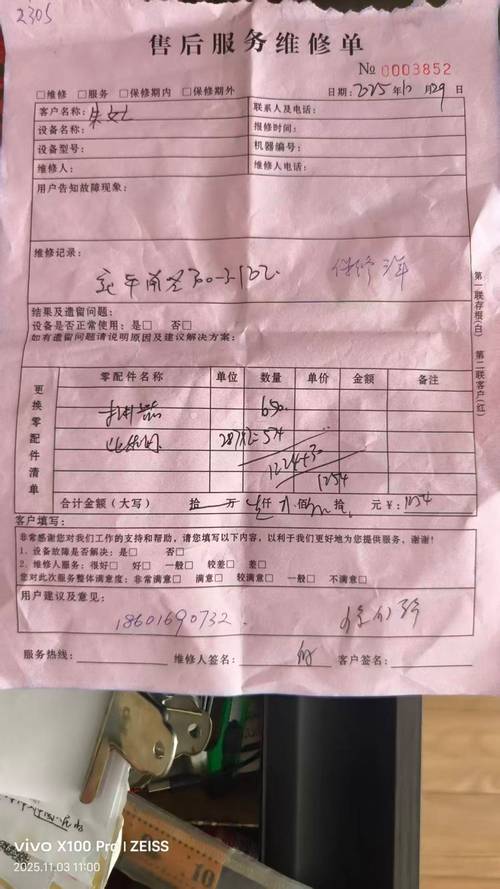 2305
售后服务维修单
№ 0003852
□维修 □服务 □保修期内 □保修期外 日期：2025年10月29日
客户名称：朱女士 联系人及电话：
设备名称： 报修时间：
设备型号： 机器编号：
维修人： 维修人电话：
用户告知故障现象：
维修记录：
保修 年
结果及遗留问题：
设备是否正常使用：是□ 否□
如有遗留问题请说明原因及建议解决方案：
第一联存根(白) 第二联客户(红)
更换零配件清单
零配件名称 单位 数量 单价 金额 备注
650
287X2=574
1224+30
1254
合计金额（大写） 拾 万 仟 佰 拾 元 ¥：1254
客户填写：
非常感谢您对我们工作的支持和帮助，请您填写以下内容，以利于我们更好地为您提供服务，谢谢！
1、设备故障是否解决：是□ 否□
2、维修人服务：很好□ 好□ 一般□ 较差□ 差□
您对此次服务整体满意度：非常满意□ 满意□ 较满意□ 一般□ 不满意□
用户建议及意见：
18601690732
服务热线： 维修人签名： 客户签名：
vivo X100 Pro | ZEISS
2025.11.03 11:00
10